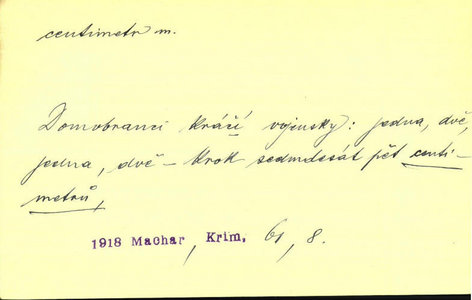 centimetr m.
Domobranci kráčí vojensky: jedna, dvě,
jedna, dvě – krok sedmdesát pět centi-
metrů,
1918 Machar, Krim, 61, 8.